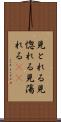 見とれる見
惚れる見蕩
れる